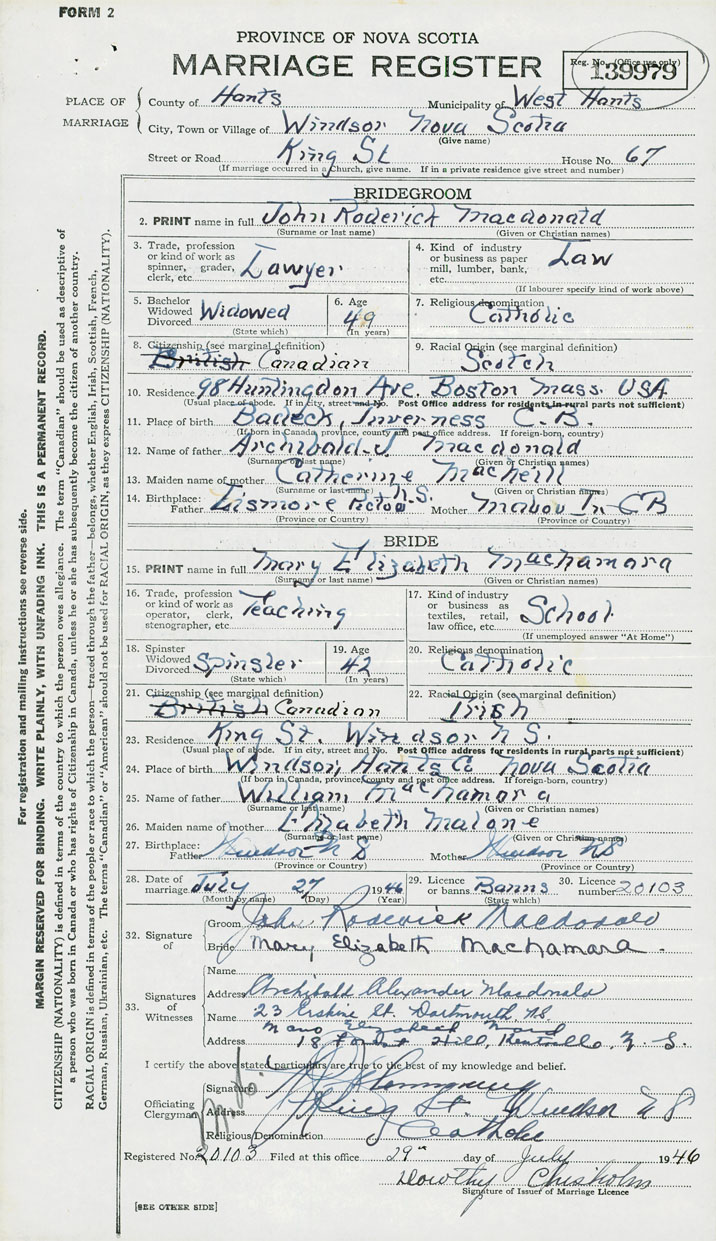 FORM 2
PROVINCE OF NOVA SCOTIA
MARRIAGE REGISTER
Reg. No. (Office use only)
139979
PLACE OF MARRIAGE
County of Hants Municipality of West Hants
City, Town or Village of Windsor Nova Scotia
(Give name)
Street or Road King St House No. 67
(If marriage occurred in a Church, give name. If in a private residence give street and number)
BRIDEGROOM
2. PRINT name in full John Roderick Macdonald
(Surname or last name) (Given or Christian names)
3. Trade, profession or kind of work as spinner, grader, clerk, etc. Lawyer
4. Kind of industry or business as paper mill, lumber, bank, etc. Law
(If labourer specify kind of work above)
5. Bachelor Widowed Divorced Widowed
(State which)
6. Age 49
(In years)
7. Religious denomination Catholic
8. Citizenship (see marginal definition) British Canadian
9. Racial Origin (see marginal definition) Scotch
10. Residence 98 Huntingdon Ave. Boston Mass. USA
(Usual place of abode. If in city, street and No. Post Office address for residents in rural parts not sufficient)
11. Place of birth Badeck, Inverness C.B.
(If born in Canada, province, county and post office address. If foreign-born, country)
12. Name of father Archibald J Macdonald
(Surname or last name) (Given or Christian names)
13. Maiden name of mother Catherine MacNeill
(Surname or last name) (Given or Christian names)
14. Birthplace: Father Lismore Pictou N.S. Mother Mabou In CB
(Province or Country) (Province or Country)
BRIDE
15. PRINT name in full Mary Elizabeth Machamara
(Surname or last name) (Given or Christian names)
16. Trade, profession or kind of work as operator, clerk, stenographer, etc. Teaching
17. Kind of industry or business as textiles, retail, law office, etc. School
(If unemployed answer "At Home")
18. Spinster Widowed Divorced Spinster
(State which)
19. Age 42
(In years)
20. Religious denomination Catholic
21. Citizenship (see marginal definition) British Canadian
22. Racial Origin (see marginal definition) Irish
23. Residence King St. Windsor N S.
(Usual place of abode. If in city, street and No. Post Office address for residents in rural parts not sufficient)
24. Place of birth Windsor, Hants Co Nova Scotia
(If born in Canada, province, county and post office address. If foreign-born, country)
25. Name of father William Machamara
(Surname or last name) (Given or Christian names)
26. Maiden name of mother Elizabeth Malone
(Surname or last name) (Given or Christian names)
27. Birthplace: Father Windsor N S Mother Windsor NS
(Province or Country) (Province or Country)
28. Date of marriage July 27 1946
(Month by name) (Day) (Year)
29. Licence or banns Banns
(State which)
30. Licence number 20103
32. Signature of
Groom John Roderick Macdonald
Bride Mary Elizabeth Machamara.
33. Signatures of Witnesses
Name
Address Archibald Alexander Macdonald
Name 23 Erskine St. Dartmouth, NS
Address 18 Hill, Kentville, N. S.
I certify the above stated particulars are true to the best of my knowledge and belief.
Officiating Clergyman
Signature
Address King St. Windsor N S
Religious Denomination Catholic
Registered No. 20103 Filed at this office 29th day of July 1946
Dorothy Chisholm
Signature of Issuer of Marriage Licence
[SEE OTHER SIDE]
For registration and mailing instructions see reverse side.
MARGIN RESERVED FOR BINDING. WRITE PLAINLY, WITH UNFADING INK. THIS IS A PERMANENT RECORD.
CITIZENSHIP (NATIONALITY) is defined in terms of the country to which the person owes allegiance. The term "Canadian" should be used as descriptive of
a person who was born in Canada or who has rights of Citizenship in Canada, unless he or she has subsequently become the citizen of another country.
RACIAL ORIGIN is defined in terms of the people or race to which the person—traced through the father—belongs, whether English, Irish, Scottish, French,
German, Russian, Ukrainian, etc. The terms "Canadian" or "American" should not be used for RACIAL ORIGIN, as they express CITIZENSHIP (NATIONALITY).